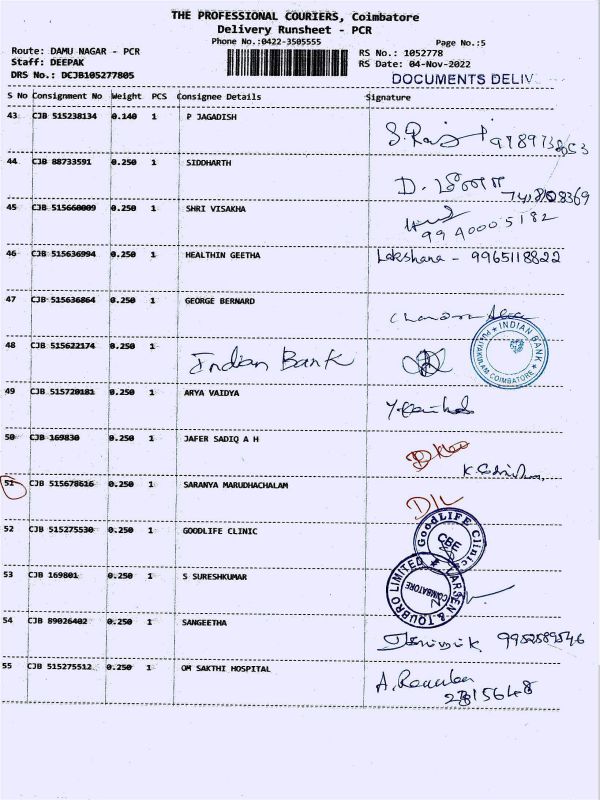 THE PROFESSIONAL COURIERS, Coimbatore
Delivery Runsheet - PCR
Phone No.:0422-3505555
Page No.:5
Route: DAMU NAGAR - PCR
RS No.: 1052778
Staff: DEEPAK
RS Date: 04-Nov-2022
DRS No.: DCJB105277805
DOCUMENTS DELIV
S No Consignment No Weight PCS Consignee Details Signature
43 CJB 515238134 0.140 1 P JAGADISH
44 CJB 88733591 0.250 1 SIDDHARTH
D.
45 CJB 515660009 0.250 1 SHRI VISAKHA
9940005182
46 CJB 515636994 0.250 1 HEALTHIN GEETHA Lakshana - 9965118822
47 CJB 515636864 0.250 1 GEORGE BERNARD
48 CJB 515622174 0.250 1 Indian Bank
INDIAN BANK
COIMBATORE
49 CJB 515720181 0.250 1 ARYA VAIDYA
50 CJB 169830 0.250 1 JAFER SADIQ A H
51 CJB 515678616 0.250 1 SARANYA MARUDHACHALAM
D/L
52 CJB 515275530 0.250 1 GOODLIFE CLINIC
GOODLIFE Clinic
CBE
53 CJB 169801 0.250 1 S SURESHKUMAR
LARSEN & TOUBRO LIMITED
COIMBATORE
54 CJB 89026402 0.250 1 SANGEETHA
9952589546
55 CJB 515275512 0.250 1 OM SAKTHI HOSPITAL